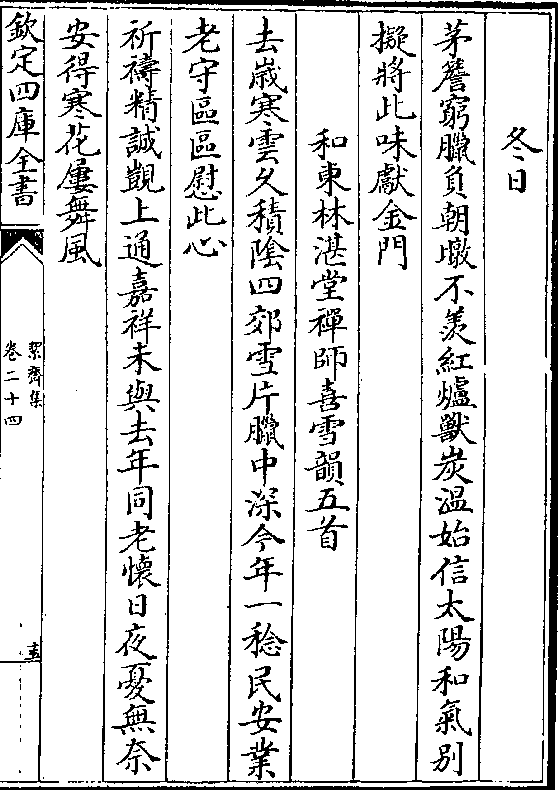 冬日
茅簷窮臘負朝暾不羨紅爐獸炭温始信太陽和氣别
擬將此味獻金門
和東林湛堂禪師喜雪韻五首
去嵗寒雲久積陰四郊雪片臘中深今年一稔民安業
老守區區慰此心
祈禱精誠覬上通嘉祥未與去年同老懷日夜憂無奈
安得寒花屢舞風
欽定四庫全書
絜齋集
卷二十四